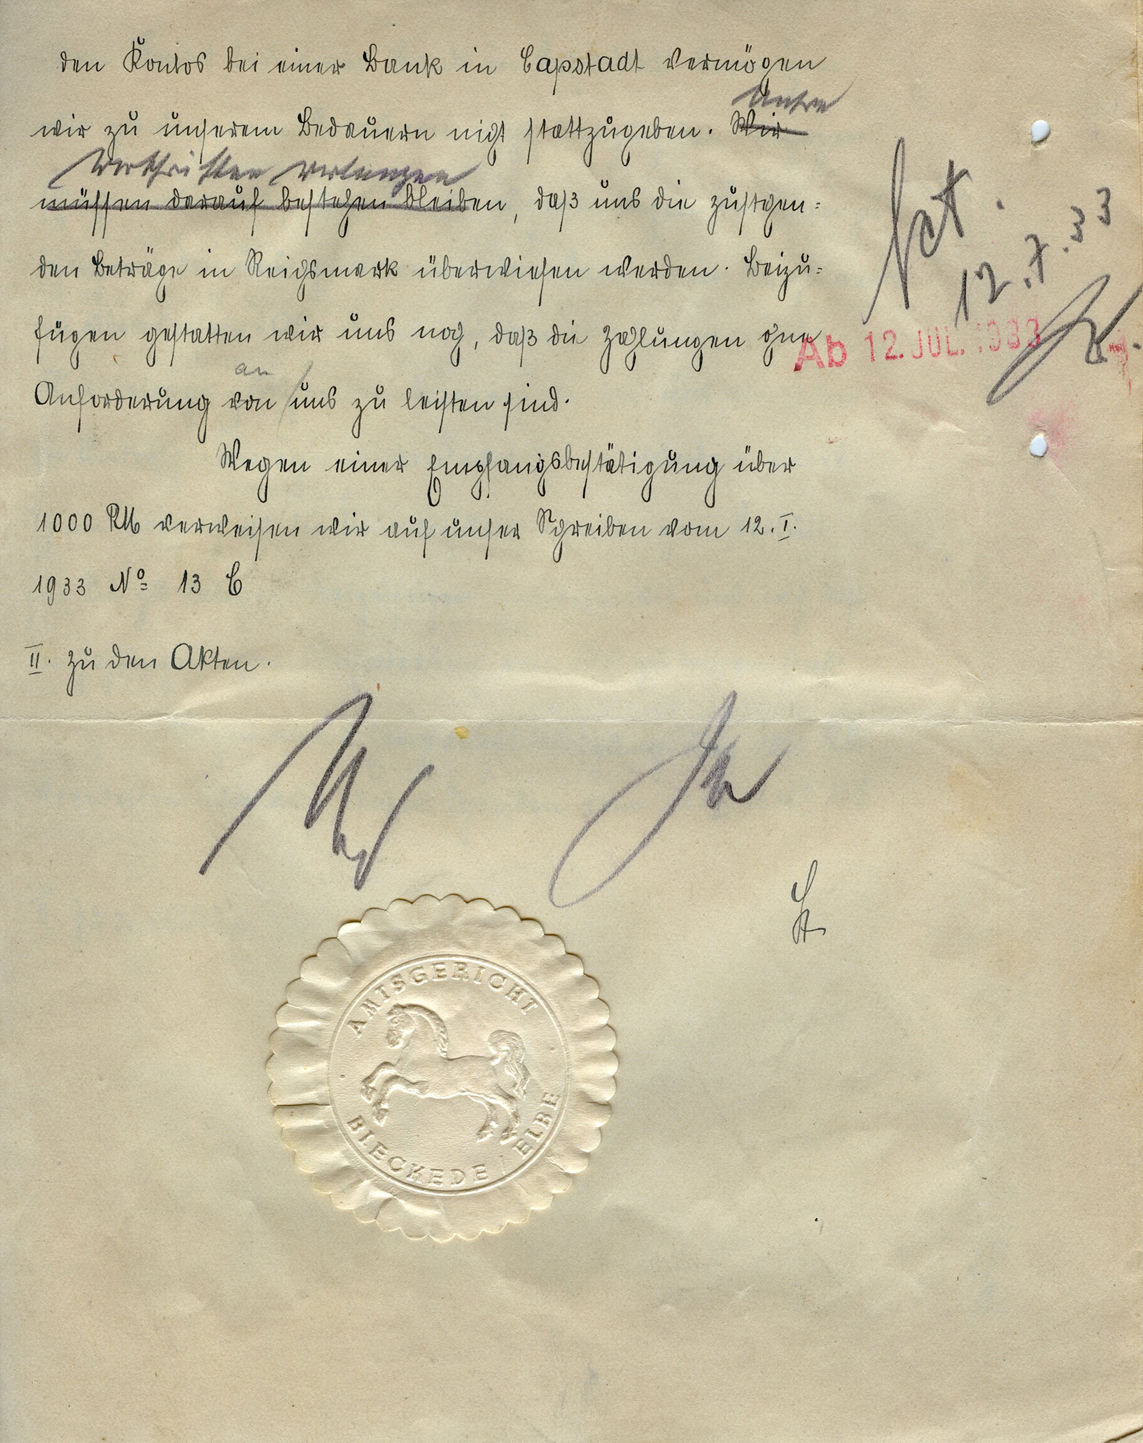 den Kontos bei einer Bank in Capstadt vermögen
wir zu unserem Bedauern nicht stattzugeben. Wir
Unsere
Vorschriften verlangen
müssen darauf bestehen bleiben, daß uns die zustehen=
den Beträge in Reichsmark überwiesen werden. Beizu=
fügen gestatten wir uns noch, daß die Zahlungen ohne
an
Anforderung von uns zu leisten sind.
Wegen einer Empfangsbestätigung über
1000 RM verweisen wir auf unser Schreiben vom 12. I.
1933 No 13 C
II. zu den Akten.
12.7.33
Ab 12. JUL. 1933
AMTSGERICHT
BLECKEDE / ELBE